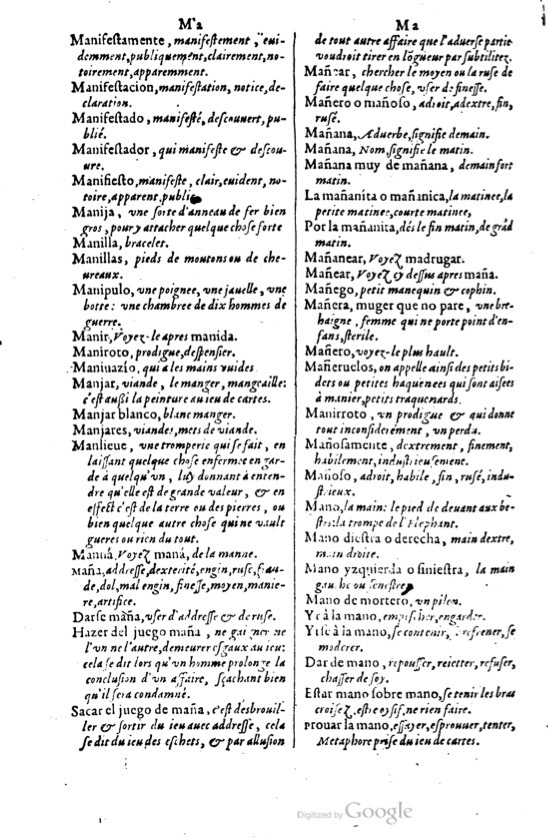 Ma
Manifestamente, manifestement, eui-
demment, publiquement, clairement, no-
toirement, apparemment.
Manifestacion, manifestation, notice, de-
claration.
Manifestado, manifesté, descouuert, pu-
blié.
Manifestador, qui manifeste & descou-
ure.
Manifiesto, manifeste, clair, euident, no-
toire, apparent, public
Manija, vne sorte d'anneau de fer bien
gros, pour y attacher quelque chose forte
Manilla, bracelet.
Manillas, pieds de moutons ou de che-
ureaux.
Manipulo, vne poignee, vne jauelle, vne
botte: vne chambre de dix hommes de
guerre.
Manir, Voyez-le apres manida.
Maniroto, prodigue, despensier.
Maniuazio, qui a les mains vuides
Manjar, viande, le manger, mangeaille:
c'est außi la peinture au jeu de cartes.
Manjar blanco, blanc manger.
Manjares, viandes, mets de viande.
Manlieue, vne tromperie qui se fait, en
laissant quelque chose enfermee en gar-
de à quelqu'vn, luy donnant à enten-
dre qu'elle est de grande valeur, & en
effect c'est de la terre ou des pierres, ou
bien quelque autre chose qui ne vault
gueres ou rien du tout.
Manná, Voyez maná, de la manne.
Maña, addresse, dexterité, engin, ruse, frau-
de, dol, mal engin, finesse, moyen, manie-
re, artifice.
Darse maña, vser d'addresse & de ruse.
Hazer del juego maña, ne gaigner ne
l'vn ne l'autre, demeurer esgaux au ieu:
cela se dit lors qu'vn homme prolonge la
conclusion d'vn affaire, sçachant bien
qu'il sera condamné.
Sacar el juego de maña, c'est desbrouil-
ler & sortir du ieu auec addresse, cela
se dit du ieu des eschets, & par allusion
Ma
de tout autre affaire que l'aduerse partie
voudroit tirer en lõgueur par subtilitez.
Mañear, chercher le moyen ou la ruse de
faire quelque chose, vser de finesse.
Mañero o mañoso, adroit, adextre, fin,
rusé.
Mañana, Aduerbe, signifie demain.
Mañana, Nom, signifie le matin.
Mañana muy de mañana, demain fort
matin.
La mañanita o mañanica, la matinee, la
petite matinee, courte matinee,
Por la mañanita, dés le fin matin, de grãd
matin.
Mañanear, Voyez madrugar.
Mañear, Voyez cy dessus apres maña.
Mañego, petit manequin & cophin.
Mañera, muger que no pare, vne bre-
haigne, femme qui ne porte point d'en-
fans, sterile.
Mañero, voyez-le plus hault.
Mañeruelos, on appelle ainsi des petits bi-
dets ou petites haquenees qui sont aisees
à manier, petits traquenards.
Manirroto, vn prodigue & qui donne
tout inconsiderément, vn perda.
Mañosamente, dextrement, finement,
habilement, industrieusement.
Mañoso, adroit, habile, fin, rusé, indu-
strieux.
Mano, la main: le pied de deuant aux be-
stes: la trompe de l'Elephant.
Mano diestra o derecha, main dextre,
main droite.
Mano yzquierda o siniestra, la main
gauche ou senestre
Mano de mortero, vn pilon.
Yr à la mano, empescher, engarder.
Yrse à la mano, se contenir, se refrener, se
moderer.
Dar de mano, repousser, reietter, refuser,
chasser de soy.
Estar mano sobre mano, se tenir les bras
croisez, estre oysif, ne rien faire.
Prouar la mano, essayer, esprouuer, tenter,
Metaphore prise du ieu de cartes.
Digitized by Google